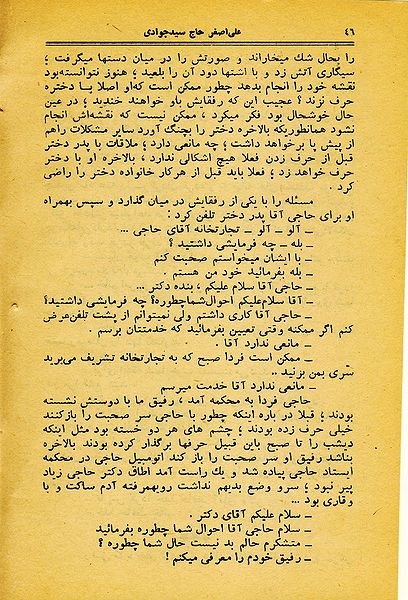 ۴۶ علی‌اصغر حاج سیدجوادی
را بحال شك میخاراند و صورتش را در میان دستها میگرفت ؛
سیگاری آتش زد و با اشتها دود آن را بلعید ؛ هنوز نتوانسته‌بود
نقشه خود را انجام بدهد چطور ممکن است که‌او اصلا با دختره
حرف نزند ؟ عجیب این که رفقایش باو خواهند خندید ؛ در عین
حال خوشحال بود فکر میکرد ، ممکن نیست که نقشه‌اش انجام
نشود همانطوریکه بالاخره دختر را بچنگ آورد سایر مشکلات راهم
از پیش پا برخواهد داشت ؛ چه مانعی دارد ؛ ملاقات با پدر دختر
قبل از حرف زدن فعلا هیچ اشکالی ندارد ، بالاخره او با دختر
حرف خواهد زد ؛ فعلا باید قبل از هرکار خانواده دختر را راضی
کرد .
مسئله را با یکی از رفقایش در میان گذارد و سپس بهمراه
او برای حاجی آقا پدر دختر تلفن کرد :
ـ آلو ـ آلو ـ تجارتخانه آقای حاجی ...
ـ بله ـ چه فرمایشی داشتید ؟
ـ با ایشان میخواستم صحبت کنم
ـ بله بفرمائید خود من هستم .
ـ حاجی آقا سلام علیکم ، بنده دکتر ...
ـ آقا سلام‌علیکم احوال‌شماچطوره؟ چه فرمایشی داشتید؟
ـ حاجی آقا کاری داشتم ولی نمیتوانم از پشت تلفن‌عرض
کنم اگر ممکنه وقتی تعیین بفرمائید که خدمتتان برسم .
ـ مانعی ندارد آقا .
ـ ممکن است فردا صبح که به تجارتخانه تشریف می‌برید
سری بمن بزنید ..
ـ مانعی ندارد آقا خدمت میرسم
حاجی فردا به محکمه آمد ، رفیق ما با دوستش نشسته
بودند ؛ قبلا در باره اینکه چطور با حاجی سر صحبت را بازکنند
خیلی حرف زده بودند ؛ چشم های هر دو خسته بود مثل اینکه
دیشب را تا صبح باین قبیل حرفها برگذار کرده بودند بالاخره
بناشد رفیق او سر صحبت را باز کند اتومبیل حاجی در محکمه
ایستاد حاجی پیاده شد و یك راست آمد اطاق دکتر حاجی زیاد
پیر نبود ؛ سرو وضع بدیهم نداشت رویهمرفته آدم ساکت و با
وقاری بود ...
ـ سلام علیکم آقای دکتر .
ـ سلام حاجی آقا احوال شما چطوره بفرمائید
ـ متشکرم حالم بد نیست حال شما چطوره ؟
ـ رفیق خودم را معرفی میکنم !